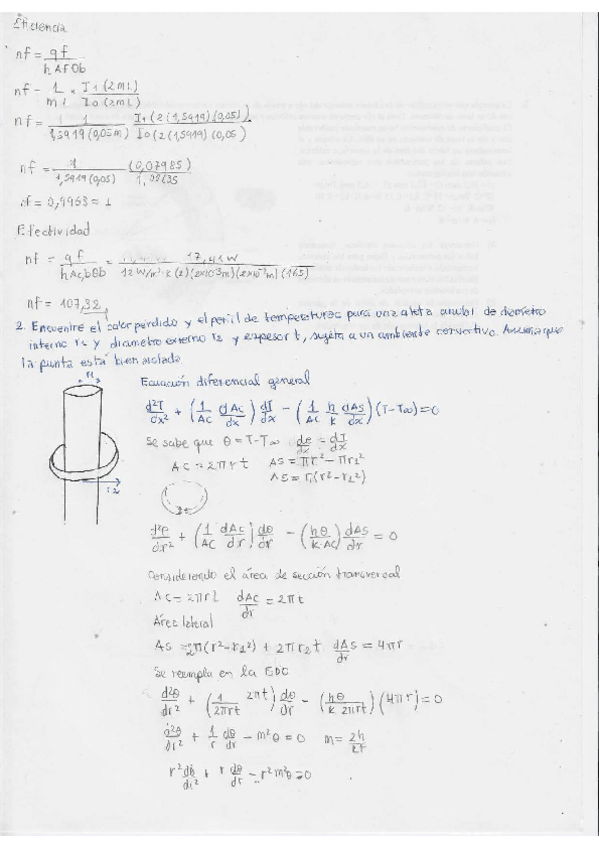 Eficiencia
nf = qf / hAfθb
nf = 1 / mL * I1 (2mL) / I0 (2mL)
nf = 1 / 1,5919 (0,05m) I1 (2(1,5919)(0,05)) / I0 (2(1,5919)(0,05)
nf = 1 / 1,5919(0,05) (0,07985) /
nf = 0,9963 ≈ 1
Efectividad
nf = qf / hAc,bθb = 17,41W / 12 W/m²·K (2)(2x10⁻³m)(2x10⁻³m)(165)
nf = 107,32
2. Encuentre el calor perdido y el perfil de temperaturas para una aleta anular de diámetro
interno r1 y diametro externo r2 y espesor t, sujeta a un ambiente convectivo. Asuma que
la punta está bien aislada.
r1
r2
Ecuación diferencial general
d²T/dx² + (1/Ac dAc/dx) dT/dx - (1/Ac h/k dAs/dx)(T-T∞)=0
Se sabe que θ = T-T∞ dθ/dx = dT/dx
Ac = 2πrt As = πr² - πr1²
As = π(r²-r1²)
d²θ/dr² + (1/Ac dAc/dr) dθ/dr - (hθ/k·Ac) dAs/dr = 0
Considerando el área de sección transversal
Ac = 2πrt dAc/dr = 2πt
Área lateral
As = 2π(r²-r1²) + 2πr2t dAs/dr = 4πr
Se reempla en la EDO
d²θ/dr² + (1/2πrt 2πt) dθ/dr - (hθ/k 2πrt)(4πr)=0
d²θ/dr² + 1/r dθ/dr - m²θ = 0 m = 2h/kt
r² d²θ/dr² + r dθ/dr - r²m²θ = 0